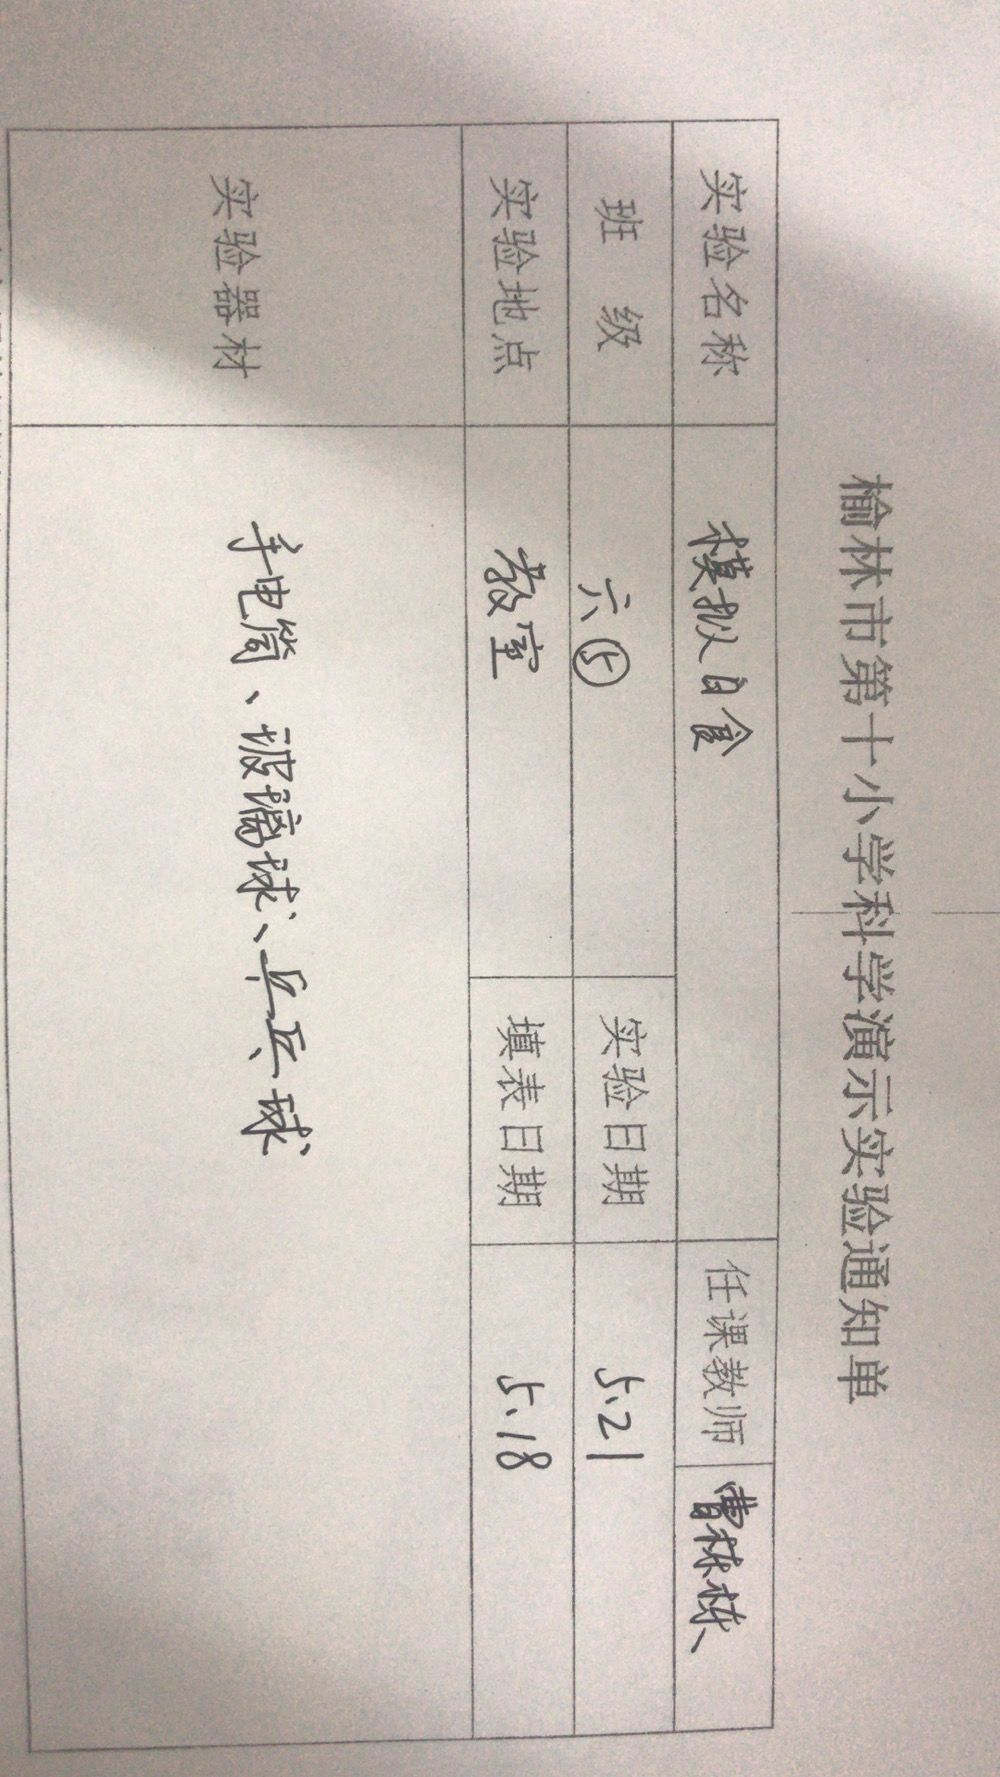 榆林市第十小学科学演示实验通知单
实验名称 模拟日食 任课教师 曹栋栋
班 级 六⑤ 实验日期 5.21
实验地点 教室 填表日期 5.18
实验器材 手电筒、玻璃球、乒乓球